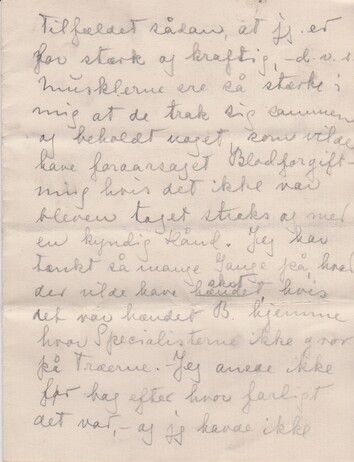 Tilfældet sådan, at jeg er
for stærk og kraftig, - d.v.s.
musklerne ere så stærke i
mig at de trak sig sammen
og beholdt noget, som vilde
have foraarsaget Blodforgift-
ning hvis det ikke var
bleven taget straks og med
en kyndig Hånd. Jeg har
tænkt så mange Gange på, hvad
der vilde have skét hvis
det var hændet B. hjemme
hvor Specialisterne ikke gror
på Træerne. Jeg anede ikke
før bag efter hvor farligt
det var, - og jeg havde ikke